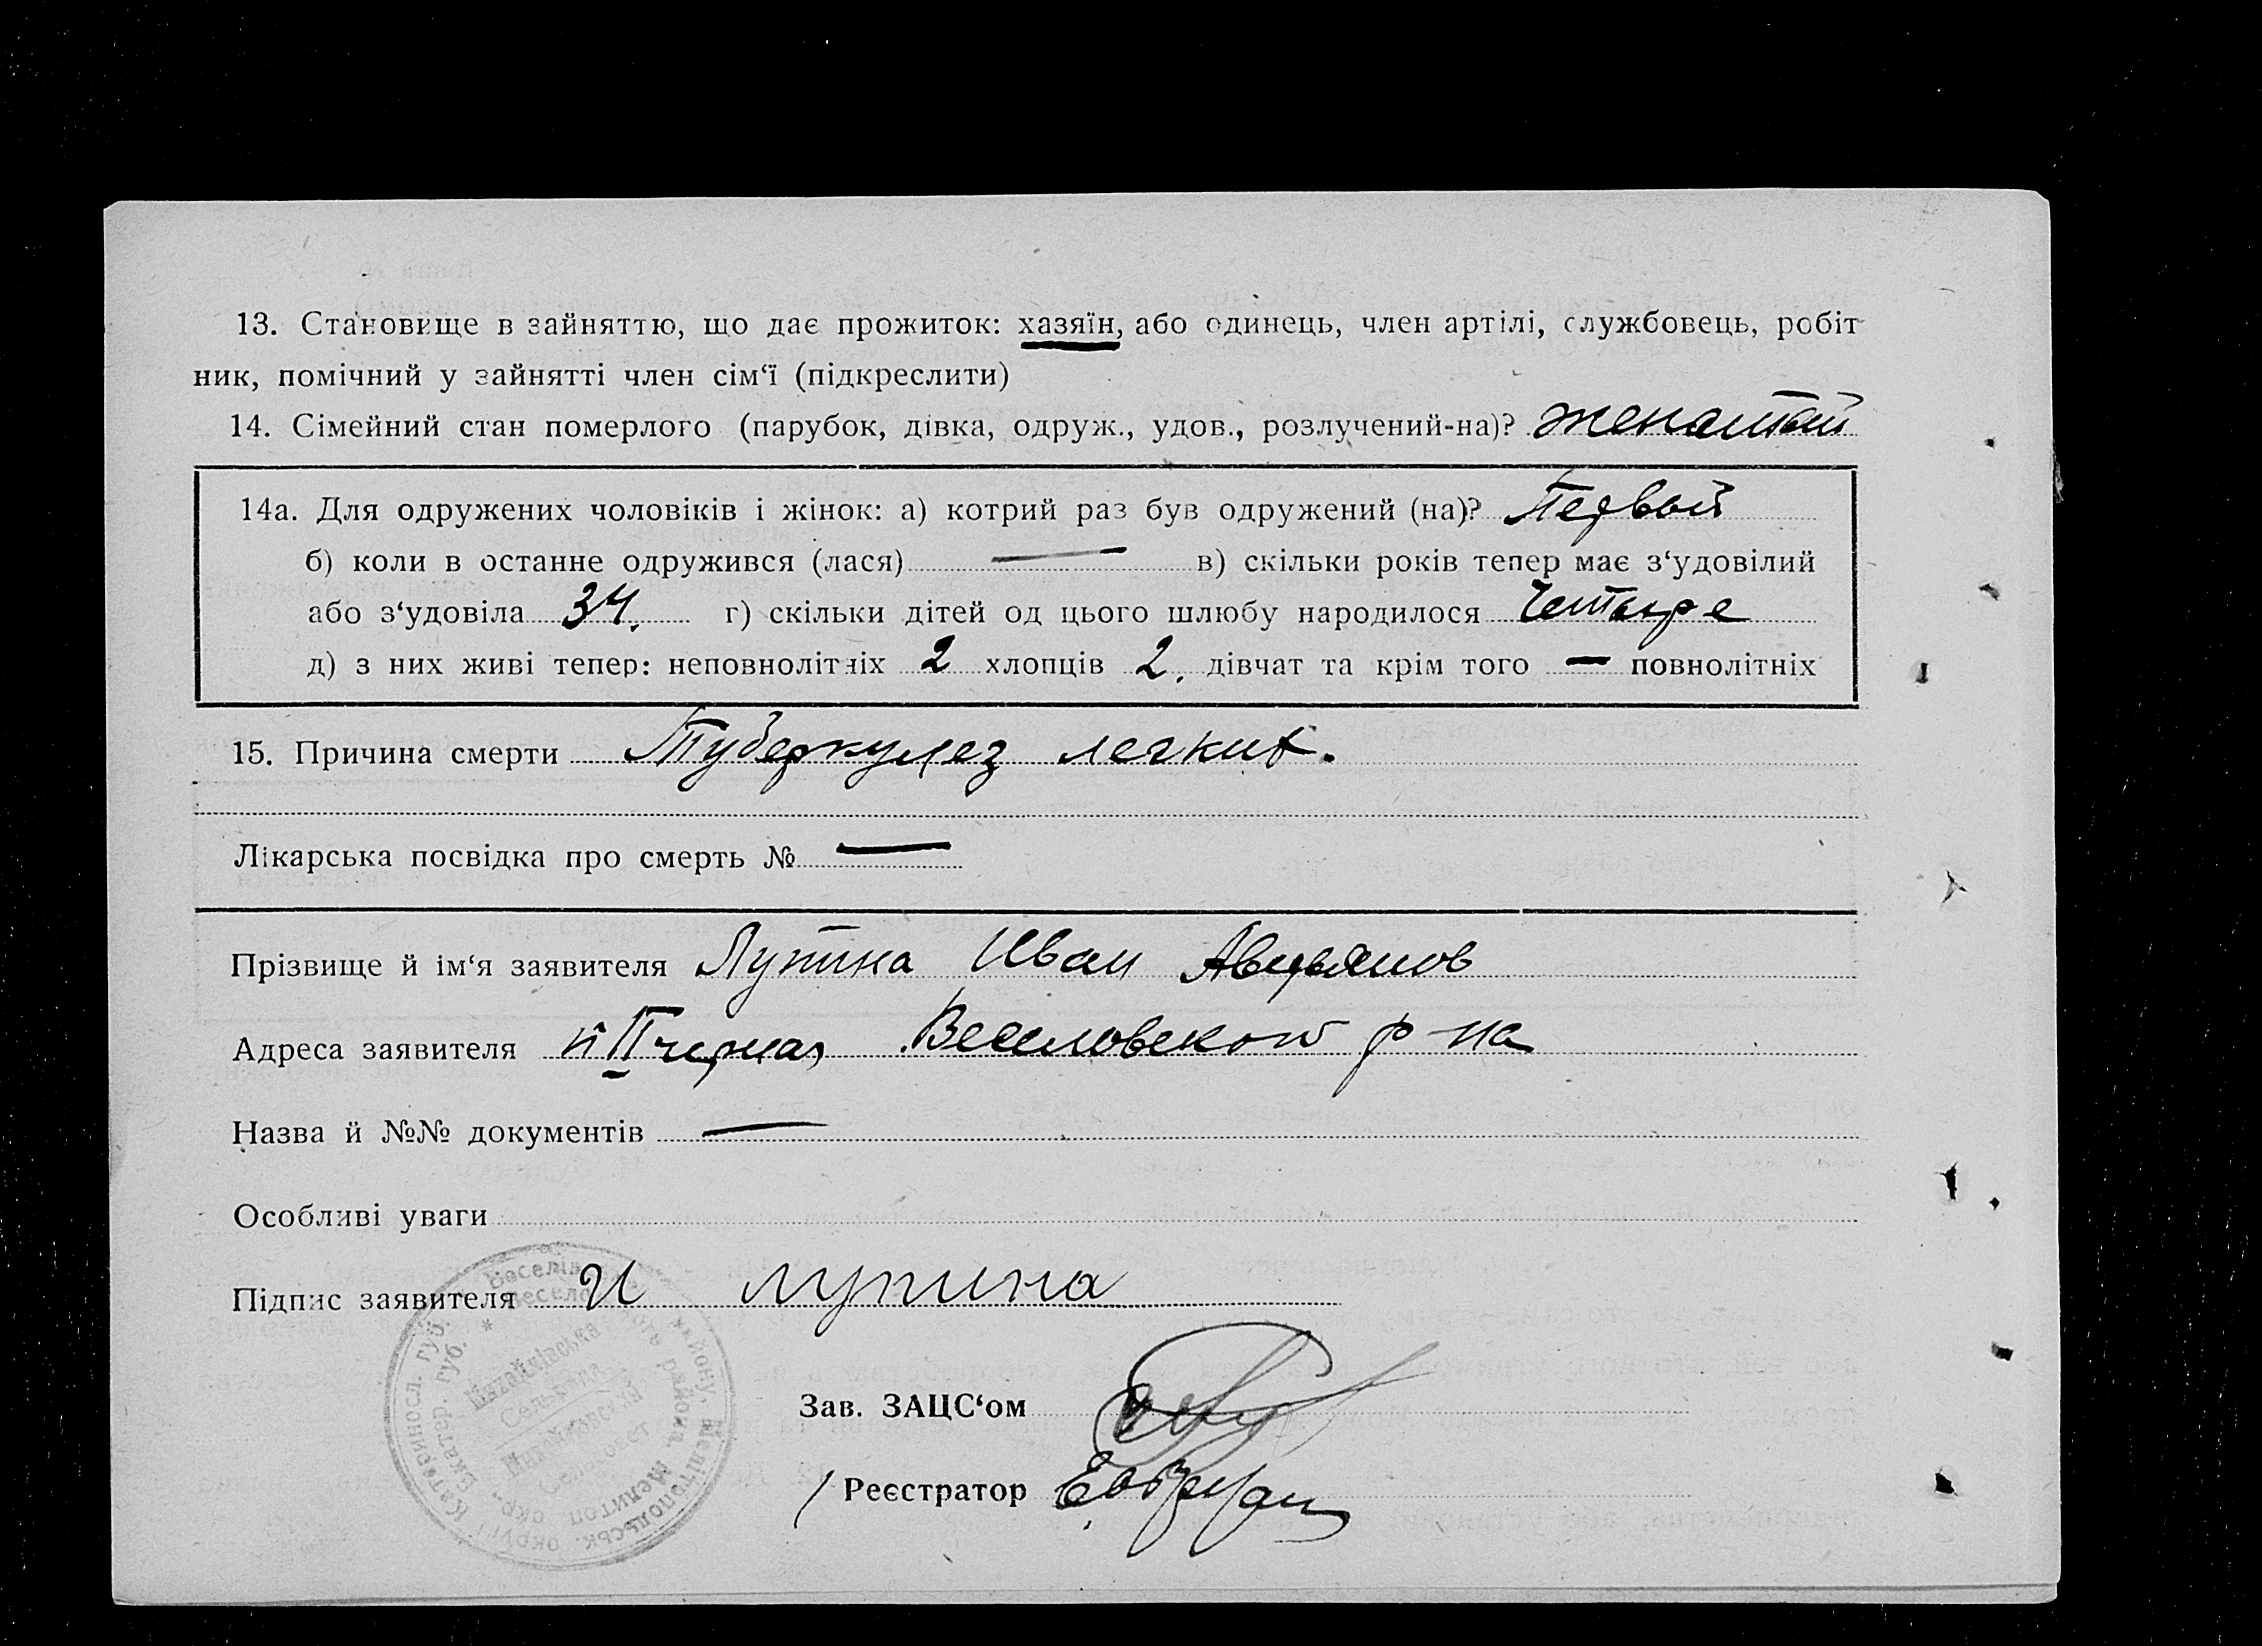 13. Становище в зайняттю, що дає прожиток: хазяїн, або одинець, член артілі, службовець, робіт
ник, помічний у зайнятті член сім‘ї (підкреслити)
14. Сімейний стан померлого (парубок, дівка, одруж., удов., розлучений-на)? женатый
14а. Для одружених чоловіків і жінок: а) котрий раз був одружений (на)? Первый
б) коли в останне одружився (лася) — в) скільки років тепер має з‘удовілий
або з‘удовіла 34. г) скільки дітей од цього шлюбу народилося Четыре
д) з них живі тепер: неповнолітніх 2 хлопців 2. дівчат та крім того — повнолітніх
15. Причина смерти Туберкулез легких.
Лікарська посвідка про смерть № —
Прізвище й ім‘я заявителя Лупина Иван
Адреса заявителя Веселовского р-на
Назва й №№ документів —
Особливі уваги
Підпис заявителя И Лупина
Зав. ЗАЦС‘ом
/ Реєстратор